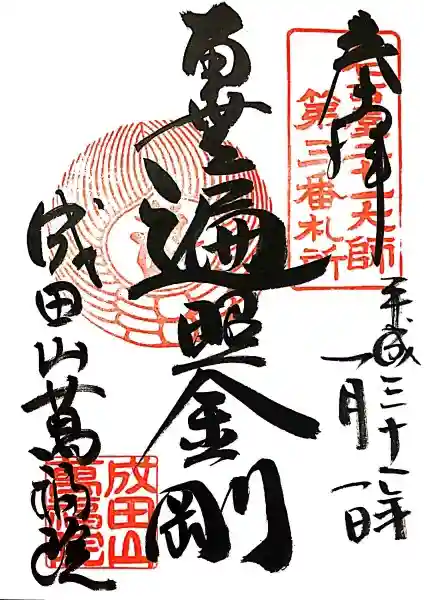 奉拝
仙臺二十一大師
第三番札所
平成三十一年
一月一日
南無遍照金剛
成田山萬福院
成田山
萬福院